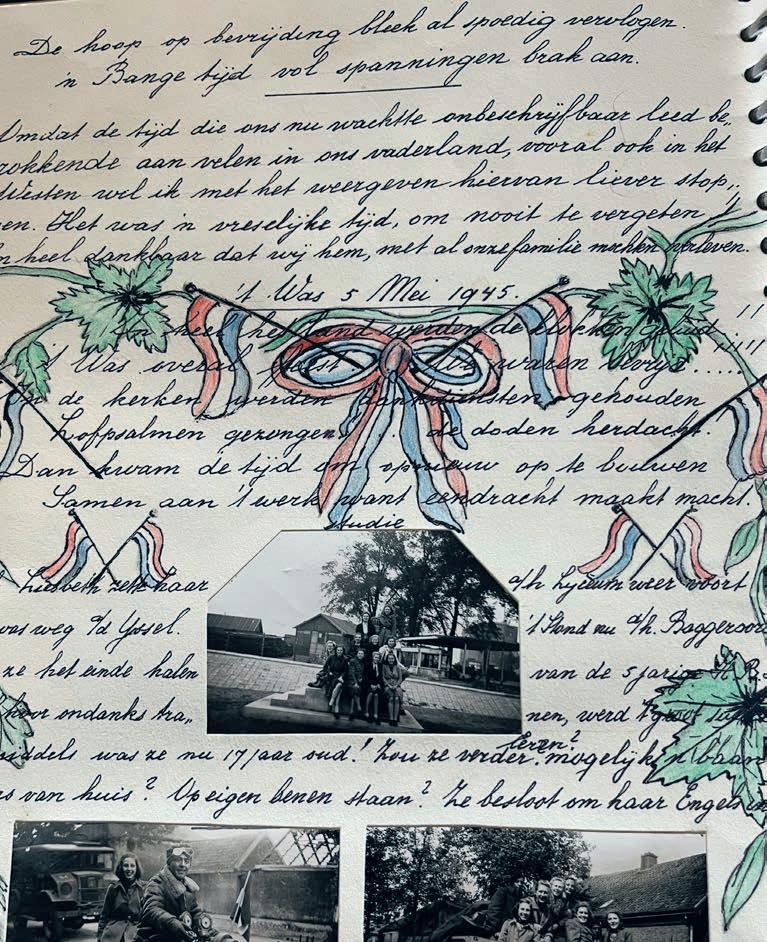 De hoop op bevrijding bleek al spoedig vervlogen.
'n Bange tijd vol spanningen brak aan.
Omdat de tijd die ons nu wachtte onbeschrijfbaar leed be„
rokkende aan velen in ons vaderland, vooral ook in het
Westen wil ik met het weergeven hiervan liever stop„
en. Het was 'n vreselijke tijd, om nooit te vergeten!!
n heel dankbaar dat wij hem, met al onze familie mochten overleven.
't Was 5 Mei 1945.
In heel het land werden de klokken geluid!!
't Was overal feest waren vrij.....!!!!
In de kerken werden dankdiensten gehouden
Lofpsalmen gezongen... de doden herdacht.
Dan kwam de tijd om opnieuw op te bouwen
Samen aan 't werk want eendracht maakt macht.
studie
Liesbeth zette haar a/h Lyceum weer voort
was weg a/d Yssel. 't Stond nu a/h. Baggeroor
ze het einde halen van de 5 jarige H.B.
hoor ondanks tra„ nen, werd 't
leren?
middels was ze nu 17 jaar oud! Zou ze verder mogelijk 'n baan
s van huis? Op eigen benen staan? Ze besloot om haar Engels in